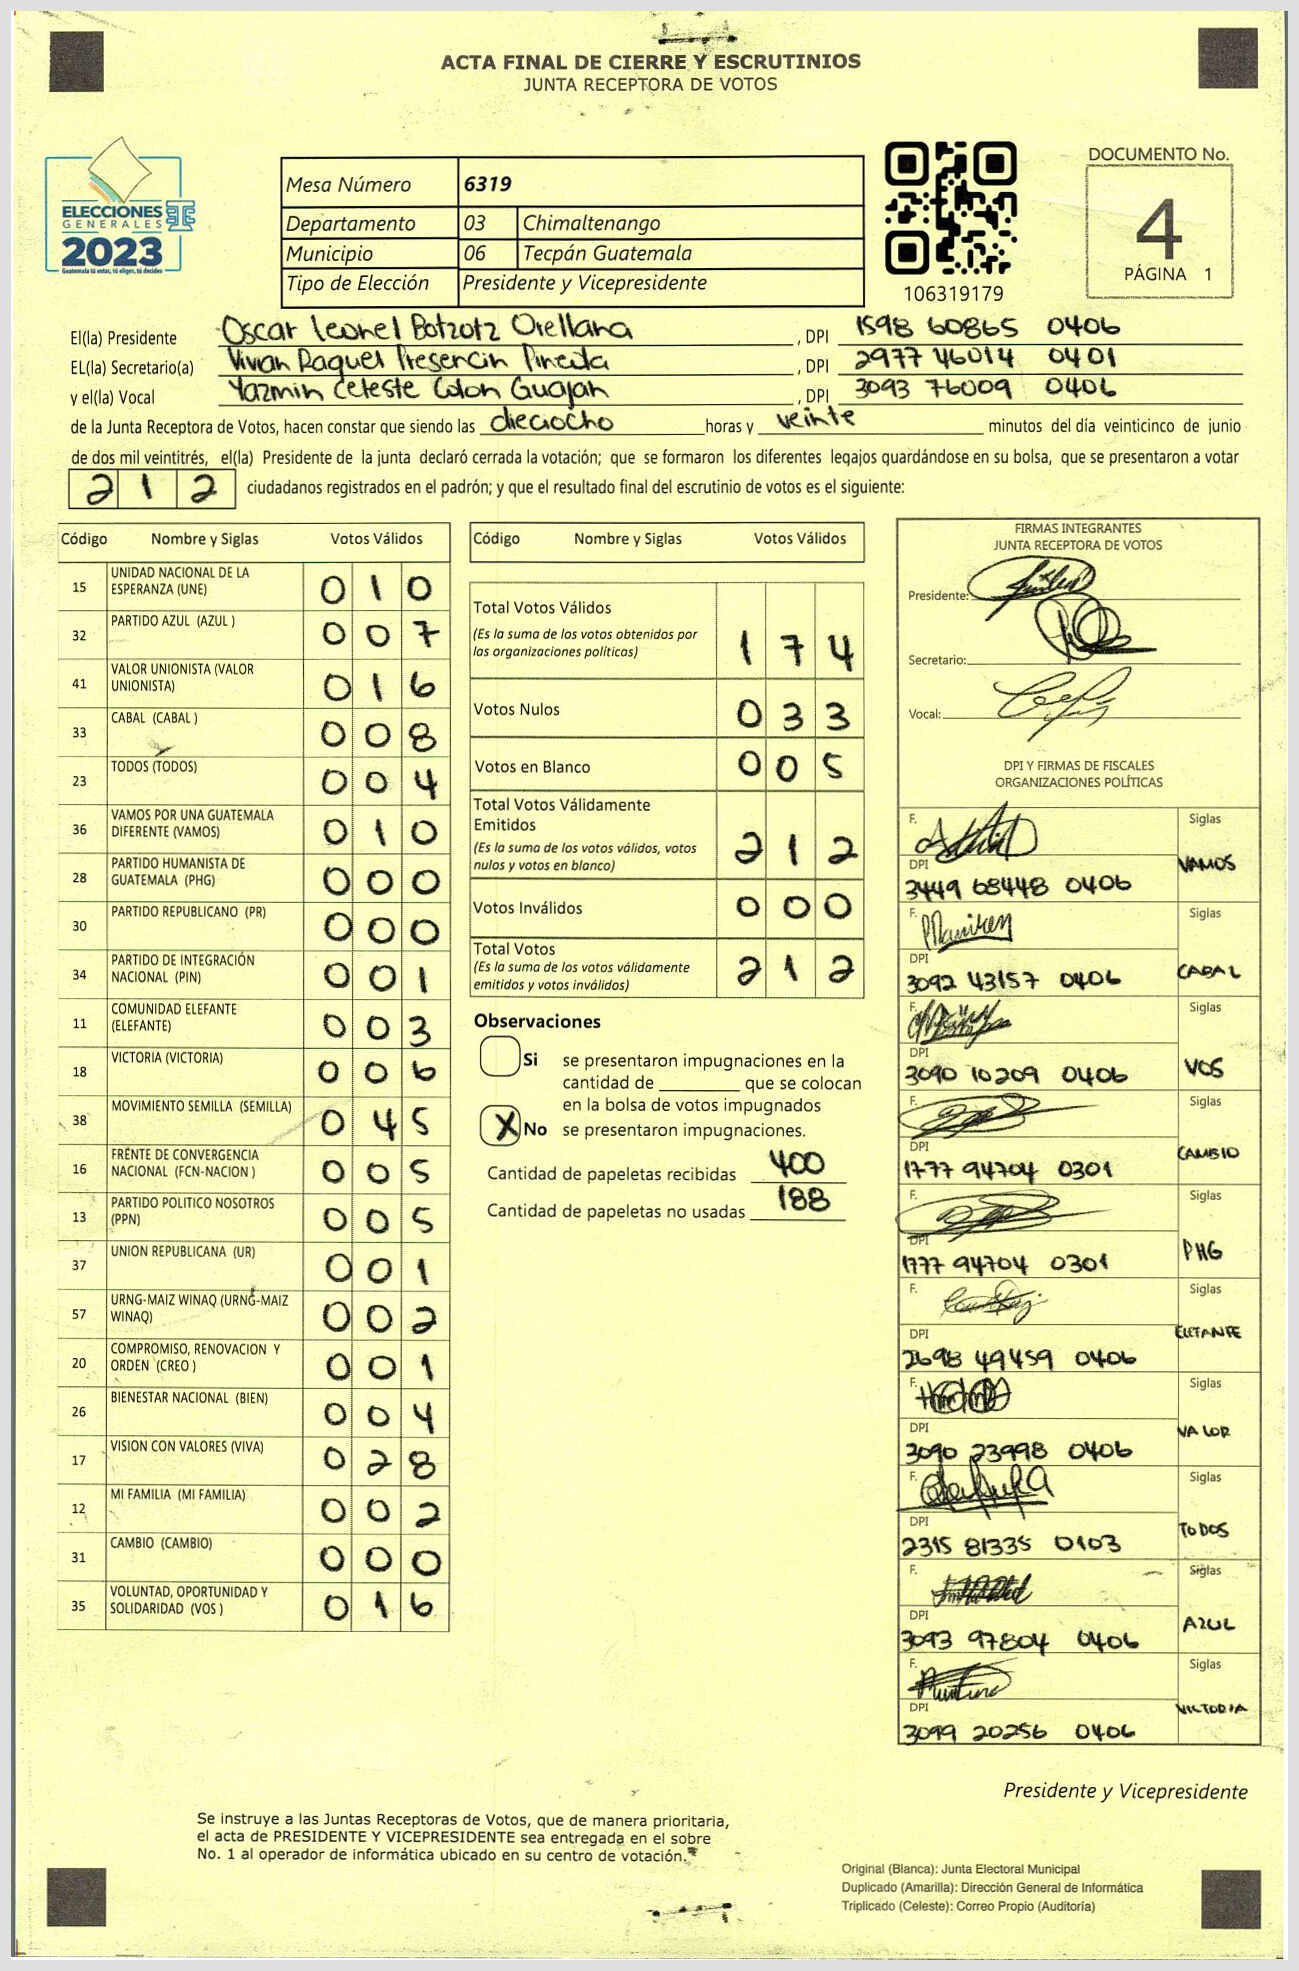 ACTA FINAL DE CIERRE Y ESCRUTINIOS
JUNTA RECEPTORA DE VOTOS
ELECCIONES
GENERALES
2023
Guatemala tú votas, tú eliges, tú decides
Mesa Número 6319
Departamento 03 Chimaltenango
Municipio 06 Tecpán Guatemala
Tipo de Elección Presidente y Vicepresidente
106319179
DOCUMENTO No.
4
PÁGINA 1
El(la) Presidente Oscar Leonel Botzotz Orellana, DPI 1598 60865 0406
EL(la) Secretario(a) Vivian Raquel Presencin Pineda, DPI 2977 46014 0401
y el(la) Vocal Yazmin Celeste Colon Guajan, DPI 3093 76009 0406
de la Junta Receptora de Votos, hacen constar que siendo las dieciocho horas y veinte minutos del día veinticinco de junio
de dos mil veintitrés, el(la) Presidente de la junta declaró cerrada la votación; que se formaron los diferentes legajos guardándose en su bolsa, que se presentaron a votar
212 ciudadanos registrados en el padrón; y que el resultado final del escrutinio de votos es el siguiente:
Código Nombre y Siglas Votos Válidos
15 UNIDAD NACIONAL DE LA ESPERANZA (UNE) 010
32 PARTIDO AZUL (AZUL ) 007
41 VALOR UNIONISTA (VALOR UNIONISTA) 016
33 CABAL (CABAL ) 008
23 TODOS (TODOS) 004
36 VAMOS POR UNA GUATEMALA DIFERENTE (VAMOS) 010
28 PARTIDO HUMANISTA DE GUATEMALA (PHG) 000
30 PARTIDO REPUBLICANO (PR) 000
34 PARTIDO DE INTEGRACIÓN NACIONAL (PIN) 001
11 COMUNIDAD ELEFANTE (ELEFANTE) 003
18 VICTORIA (VICTORIA) 006
38 MOVIMIENTO SEMILLA (SEMILLA) 045
16 FRENTE DE CONVERGENCIA NACIONAL (FCN-NACION ) 005
13 PARTIDO POLITICO NOSOTROS (PPN) 005
37 UNION REPUBLICANA (UR) 001
57 URNG-MAIZ WINAQ (URNG-MAIZ WINAQ) 002
20 COMPROMISO, RENOVACION Y ORDEN (CREO ) 001
26 BIENESTAR NACIONAL (BIEN) 004
17 VISION CON VALORES (VIVA) 028
12 MI FAMILIA (MI FAMILIA) 002
31 CAMBIO (CAMBIO) 000
35 VOLUNTAD, OPORTUNIDAD Y SOLIDARIDAD (VOS ) 016
Código Nombre y Siglas Votos Válidos
Total Votos Válidos 174
(Es la suma de los votos obtenidos por
las organizaciones políticas)
Votos Nulos 033
Votos en Blanco 005
Total Votos Válidamente
Emitidos 212
(Es la suma de los votos válidos, votos
nulos y votos en blanco)
Votos Inválidos 000
Total Votos 212
(Es la suma de los votos válidamente
emitidos y votos inválidos)
Observaciones
Si se presentaron impugnaciones en la
cantidad de ________ que se colocan
en la bolsa de votos impugnados
X No se presentaron impugnaciones.
Cantidad de papeletas recibidas 400
Cantidad de papeletas no usadas 188
FIRMAS INTEGRANTES
JUNTA RECEPTORA DE VOTOS
Presidente:
Secretario:
Vocal:
DPI Y FIRMAS DE FISCALES
ORGANIZACIONES POLÍTICAS
F. Siglas
DPI VAMOS
3449 68448 0406
F. Siglas
DPI CABAL
3092 43157 0406
F. Siglas
DPI VOS
3090 10209 0406
F. Siglas
DPI CAMBIO
1777 94704 0301
F. Siglas
DPI PHG
1777 94704 0301
F. Siglas
DPI
2698 49459 0406
F. Siglas
DPI VALOR
3090 23998 0406
F. Siglas
DPI TODOS
2315 81335 0103
F. Siglas
DPI AZUL
3093 97804 0406
F. Siglas
DPI VICTORIA
3099 20256 0406
Presidente y Vicepresidente
Se instruye a las Juntas Receptoras de Votos, que de manera prioritaria,
el acta de PRESIDENTE Y VICEPRESIDENTE sea entregada en el sobre
No. 1 al operador de informática ubicado en su centro de votación.
Original (Blanca): Junta Electoral Municipal
Duplicado (Amarilla): Dirección General de Informática
Triplicado (Celeste): Correo Propio (Auditoría)